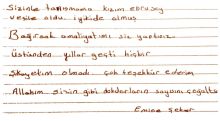 Sizinle tanışmama kızım ebru bey
vesile oldu. iyikide olmuş
Bağırsak ameliyatımı siz yaptınız
Üstünden yıllar geçti hiçbir
şikayetim olmadı. çok teşekkür ederim
Allahım sizin gibi doktorların sayısını çoğaltsın
Emine Şeker